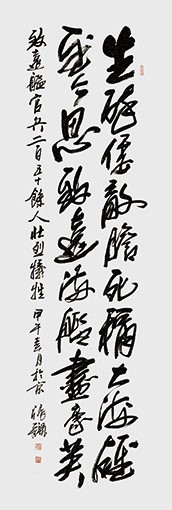 生破倭敵膽死稱大海雄
至今思致遠海艦盡豪英
致遠艦官兵二百五十餘人壯烈犧牲 甲午春月於京